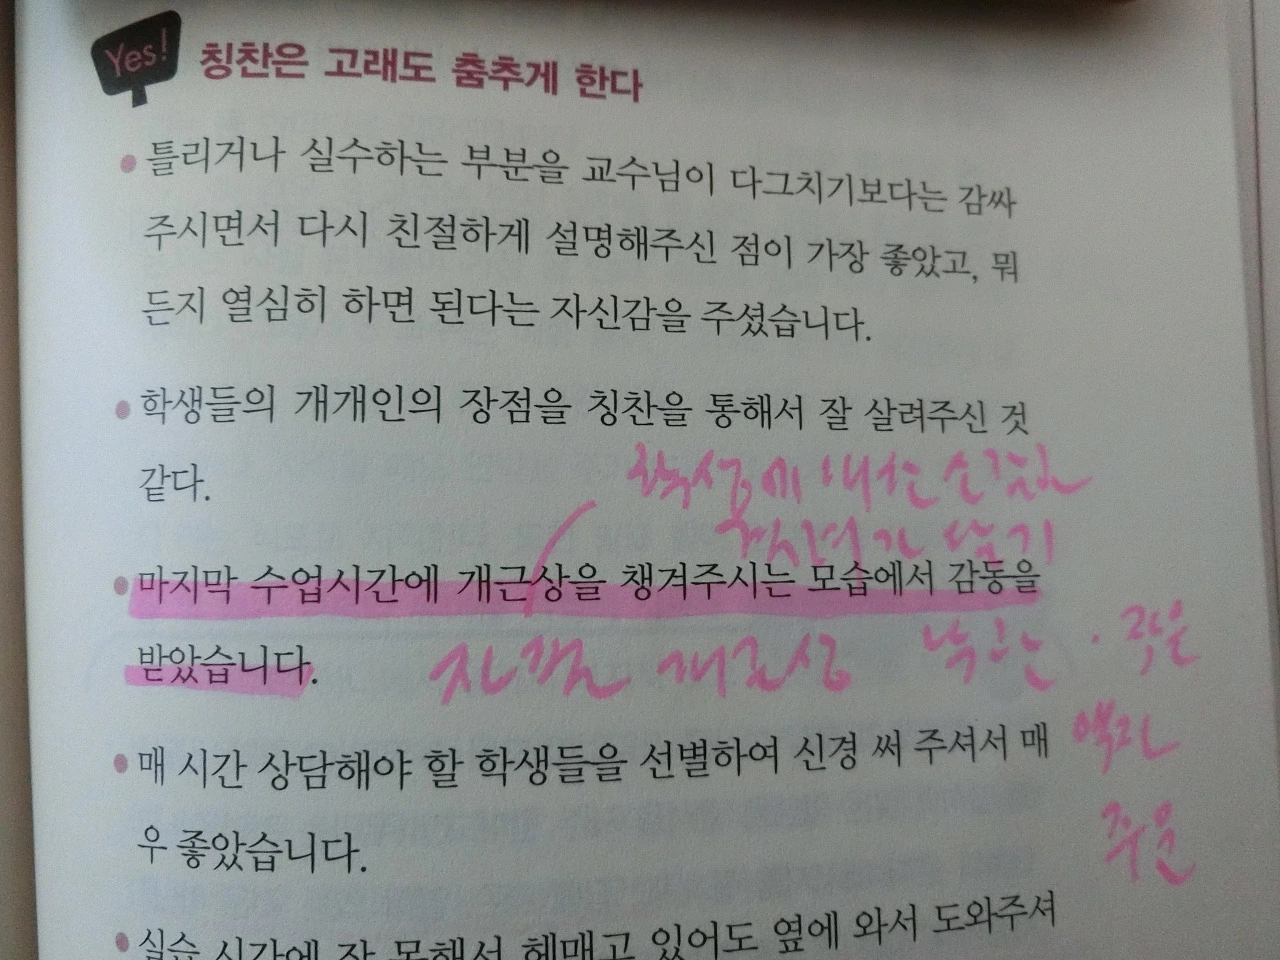 Yes! 칭찬은 고래도 춤추게 한다
틀리거나 실수하는 부분을 교수님이 다그치기보다는 감싸
주시면서 다시 친절하게 설명해주신 점이 가장 좋았고, 뭐
든지 열심히 하면 된다는 자신감을 주셨습니다.
학생들의 개개인의 장점을 칭찬을 통해서 잘 살려주신 것
같다.
학생에 대한
마지막 수업시간에 개근상을 챙겨주시는 모습에서 감동을
받았습니다.
개근상
매 시간 상담해야 할 학생들을 선별하여 신경 써 주셔서 매
우 좋았습니다.
실습 시간에 잘 못해서 헤매고 있어도 옆에 와서 도와주셔